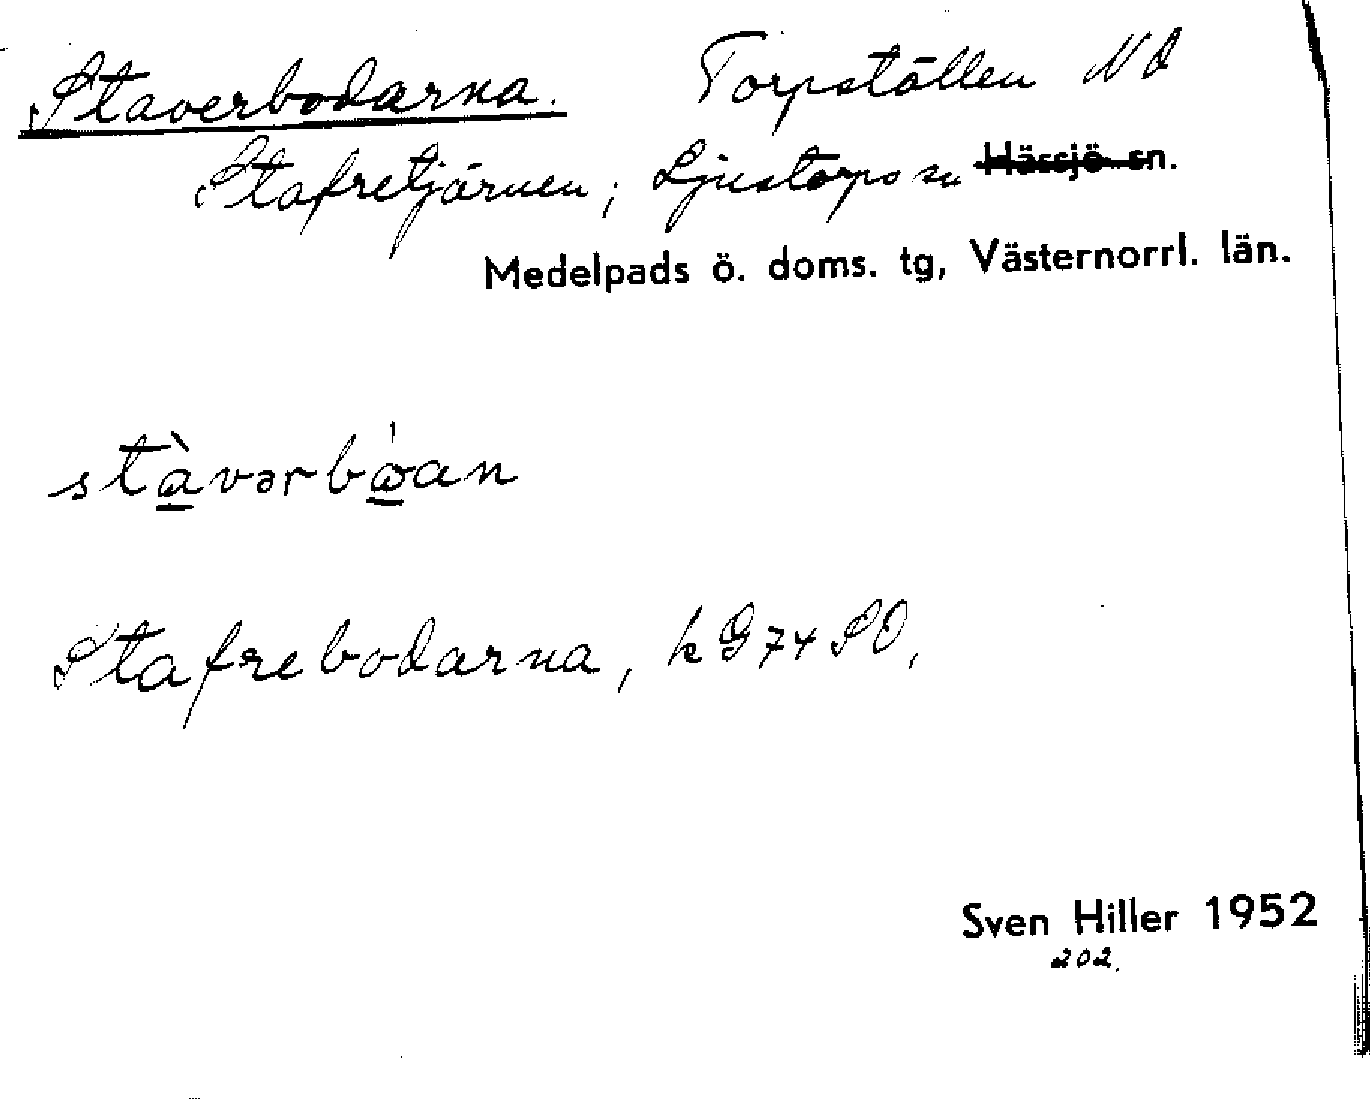 Staverbodarna. Torpställen NO
Stafretjärnen; Ljustorps sn Hässjö sn.
Medelpads ö. doms. tg, Västernorrl. län.
stàvərbòan
Stafrebodarna, k G74 SO,
Sven Hiller 1952
202.